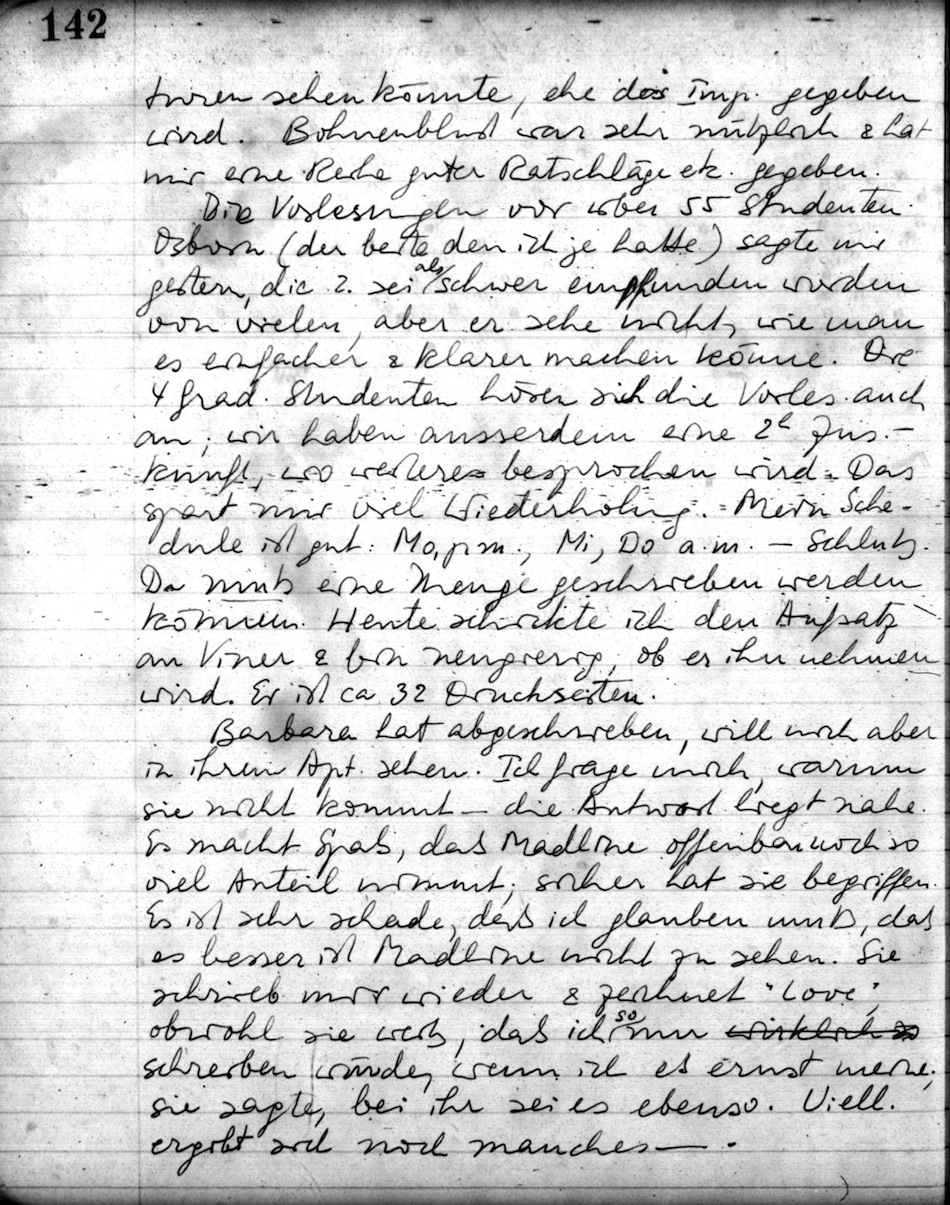 142
turen sehen könnte, ehe das Imp. gegeben
wird. Bohnenblust war sehr nützlich & hat
mir eine Reihe guter Ratschläge etc. gegeben.
Die Vorlesungen vor über 55 Studenten.
Osborn (der beste den ich je hatte) sagte mir
gestern, die 2. sei als schwer empfunden worden
von vielen, aber er sehe nicht, wie man
es einfacher & klarer machen könne. Die
4 grad. Studenten hören sich die Vorles. auch
an; wir haben ausserdem eine 2h Zus.-
kunft, wo weiteres besprochen wird. Das
spart mir viel Wiederholung. Mein Sche-
dule ist gut: Mo, p.m., Mi, Do a.m. – Schluß.
Da muß eine Menge geschrieben werden
können. Heute schickte ich den Aufsatz
an Viner & bin neugierig, ob er ihn nehmen
wird. Er ist ca 32 Druckseiten.
Barbara hat abgeschrieben, will mich aber
in ihrem Apt. sehen. Ich frage mich, warum
sie nicht kommt – die Antwort liegt nahe.
Es macht Spaß, daß Madline offenbar noch so
viel Anteil nimmt; sicher hat sie begriffen.
Es ist sehr schade, daß ich glauben muß, daß
es besser ist Madline nicht zu sehen. Sie
schrieb mir wieder & zeichnet "Love",
obwohl sie weiß, daß ich so nur wirklich so
schreiben würde, wenn ich es ernst meine;
sie sagte, bei ihr sei es ebenso. Viell.
ergibt sich noch manches —.